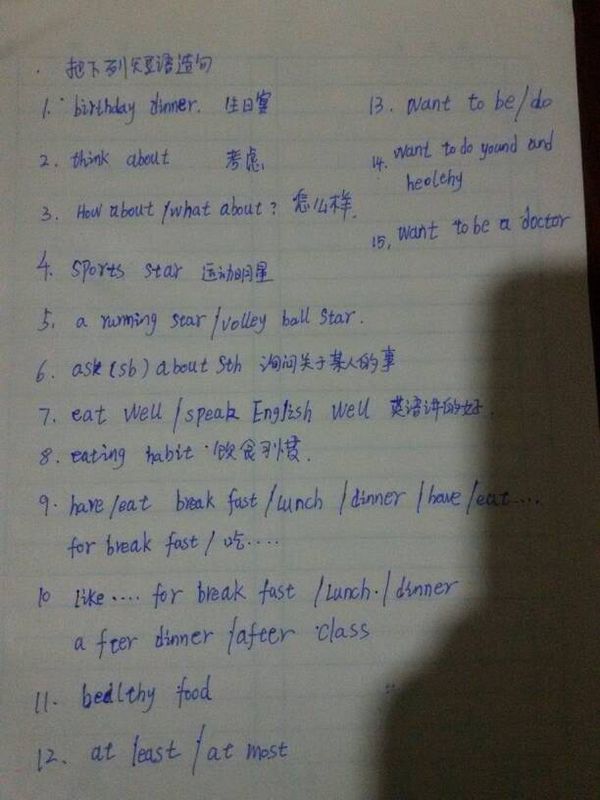 . 把下列短语造句
1. birthday dinner. 生日宴
2. think about 考虑
3. How about / what about ? 怎么样.
4. Sports star 运动明星
5. a running star / volley ball star.
6. ask (sb) about sth 询问关于某人的事
7. eat well / speak English well 英语讲的好.
8. eating habit 饮食习惯.
9. have / eat break fast / lunch / dinner / have / eat....
for break fast / 吃....
10 like .... for break fast / lunch. / dinner
a fter dinner / after class
11. healthy food
12. at least / at most
13. want to be / do
14. want to do yound and
heolthy
15. want to be a doctor